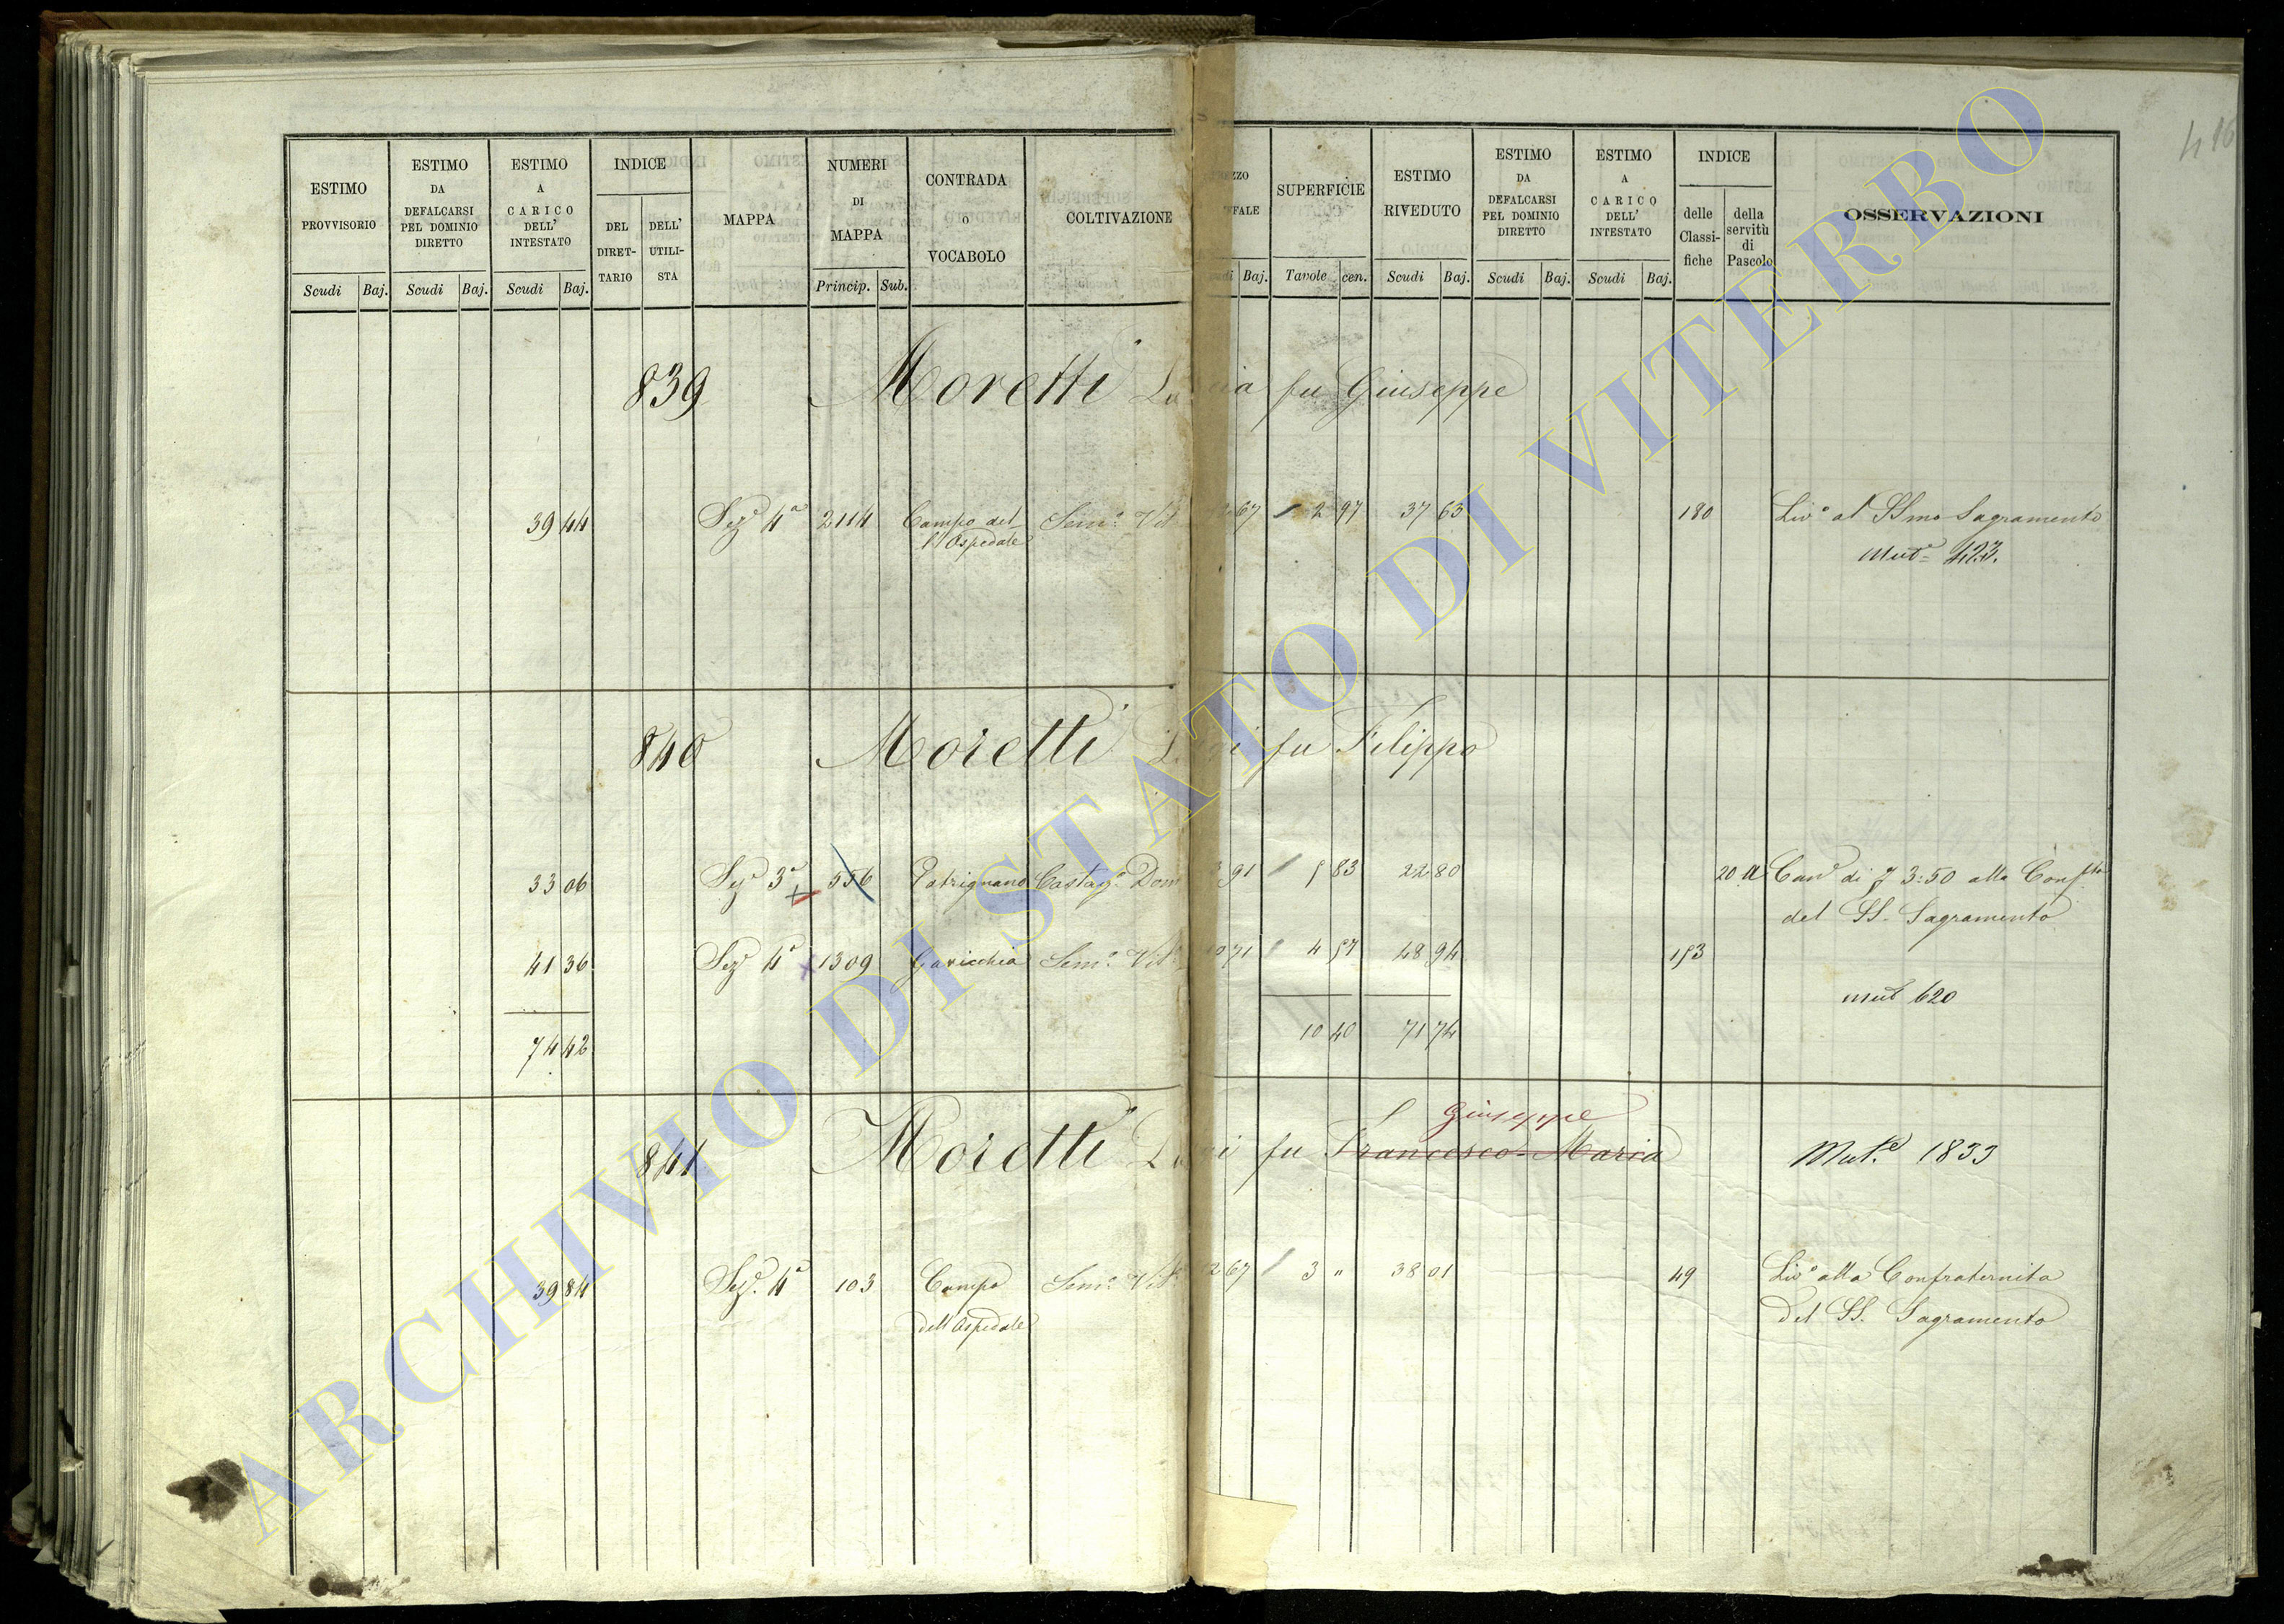 416
ESTIMO PROVVISORIO
Scudi Baj.
ESTIMO DA DEFALCARSI PEL DOMINIO DIRETTO
Scudi Baj.
ESTIMO A CARICO DELL' INTESTATO
Scudi Baj.
INDICE
DEL DIRET- TARIO
DELL' UTILI- STA
MAPPA
NUMERI DI MAPPA
Princip. Sub.
CONTRADA O VOCABOLO
COLTIVAZIONE
Baj.
SUPERFICIE
Tavole cen.
ESTIMO RIVEDUTO
Scudi Baj.
ESTIMO DA DEFALCARSI PEL DOMINIO DIRETTO
Scudi Baj.
ESTIMO A CARICO DELL' INTESTATO
Scudi Baj.
INDICE
delle Classi- fiche
della servitù di Pascolo
OSSERVAZIONI
839 Moretti fu Giuseppe
39 44 Sezᵉ 4ª 2114 Campo del Semᵒ Vitᵒ 67 2 97 37 63 180 Livᵒ al SSmo Sagramento
l'Ospedale
Mutᵉ 423.
840 Moretti fu Filippo
33 06 Sezᵉ 3ª 556 Patrignano Castagᵒ Dom 91 5 83 22 80 20 Canᵉ di 3:50 alla Confᵗᵃ
del SS. Sagramento
41 36 Sezᵉ 4ª 1309 Gavicchia Semᵒ Vitᵒ 71 4 57 48 94 153
mutᵉ 620
74 42 10 40 71 74
Giuseppe
841 Moretti fu Francesco Maria Mutᵉ 1833
39 84 Sezᵉ 4ª 103 Campo Semᵒ Vitᵒ 2 67 3 " 38 01 49 Livᵒ alla Confraternita
dell'Ospedale
Del SS. Sagramento
ARCHIVIO DI STATO DI VITERBO